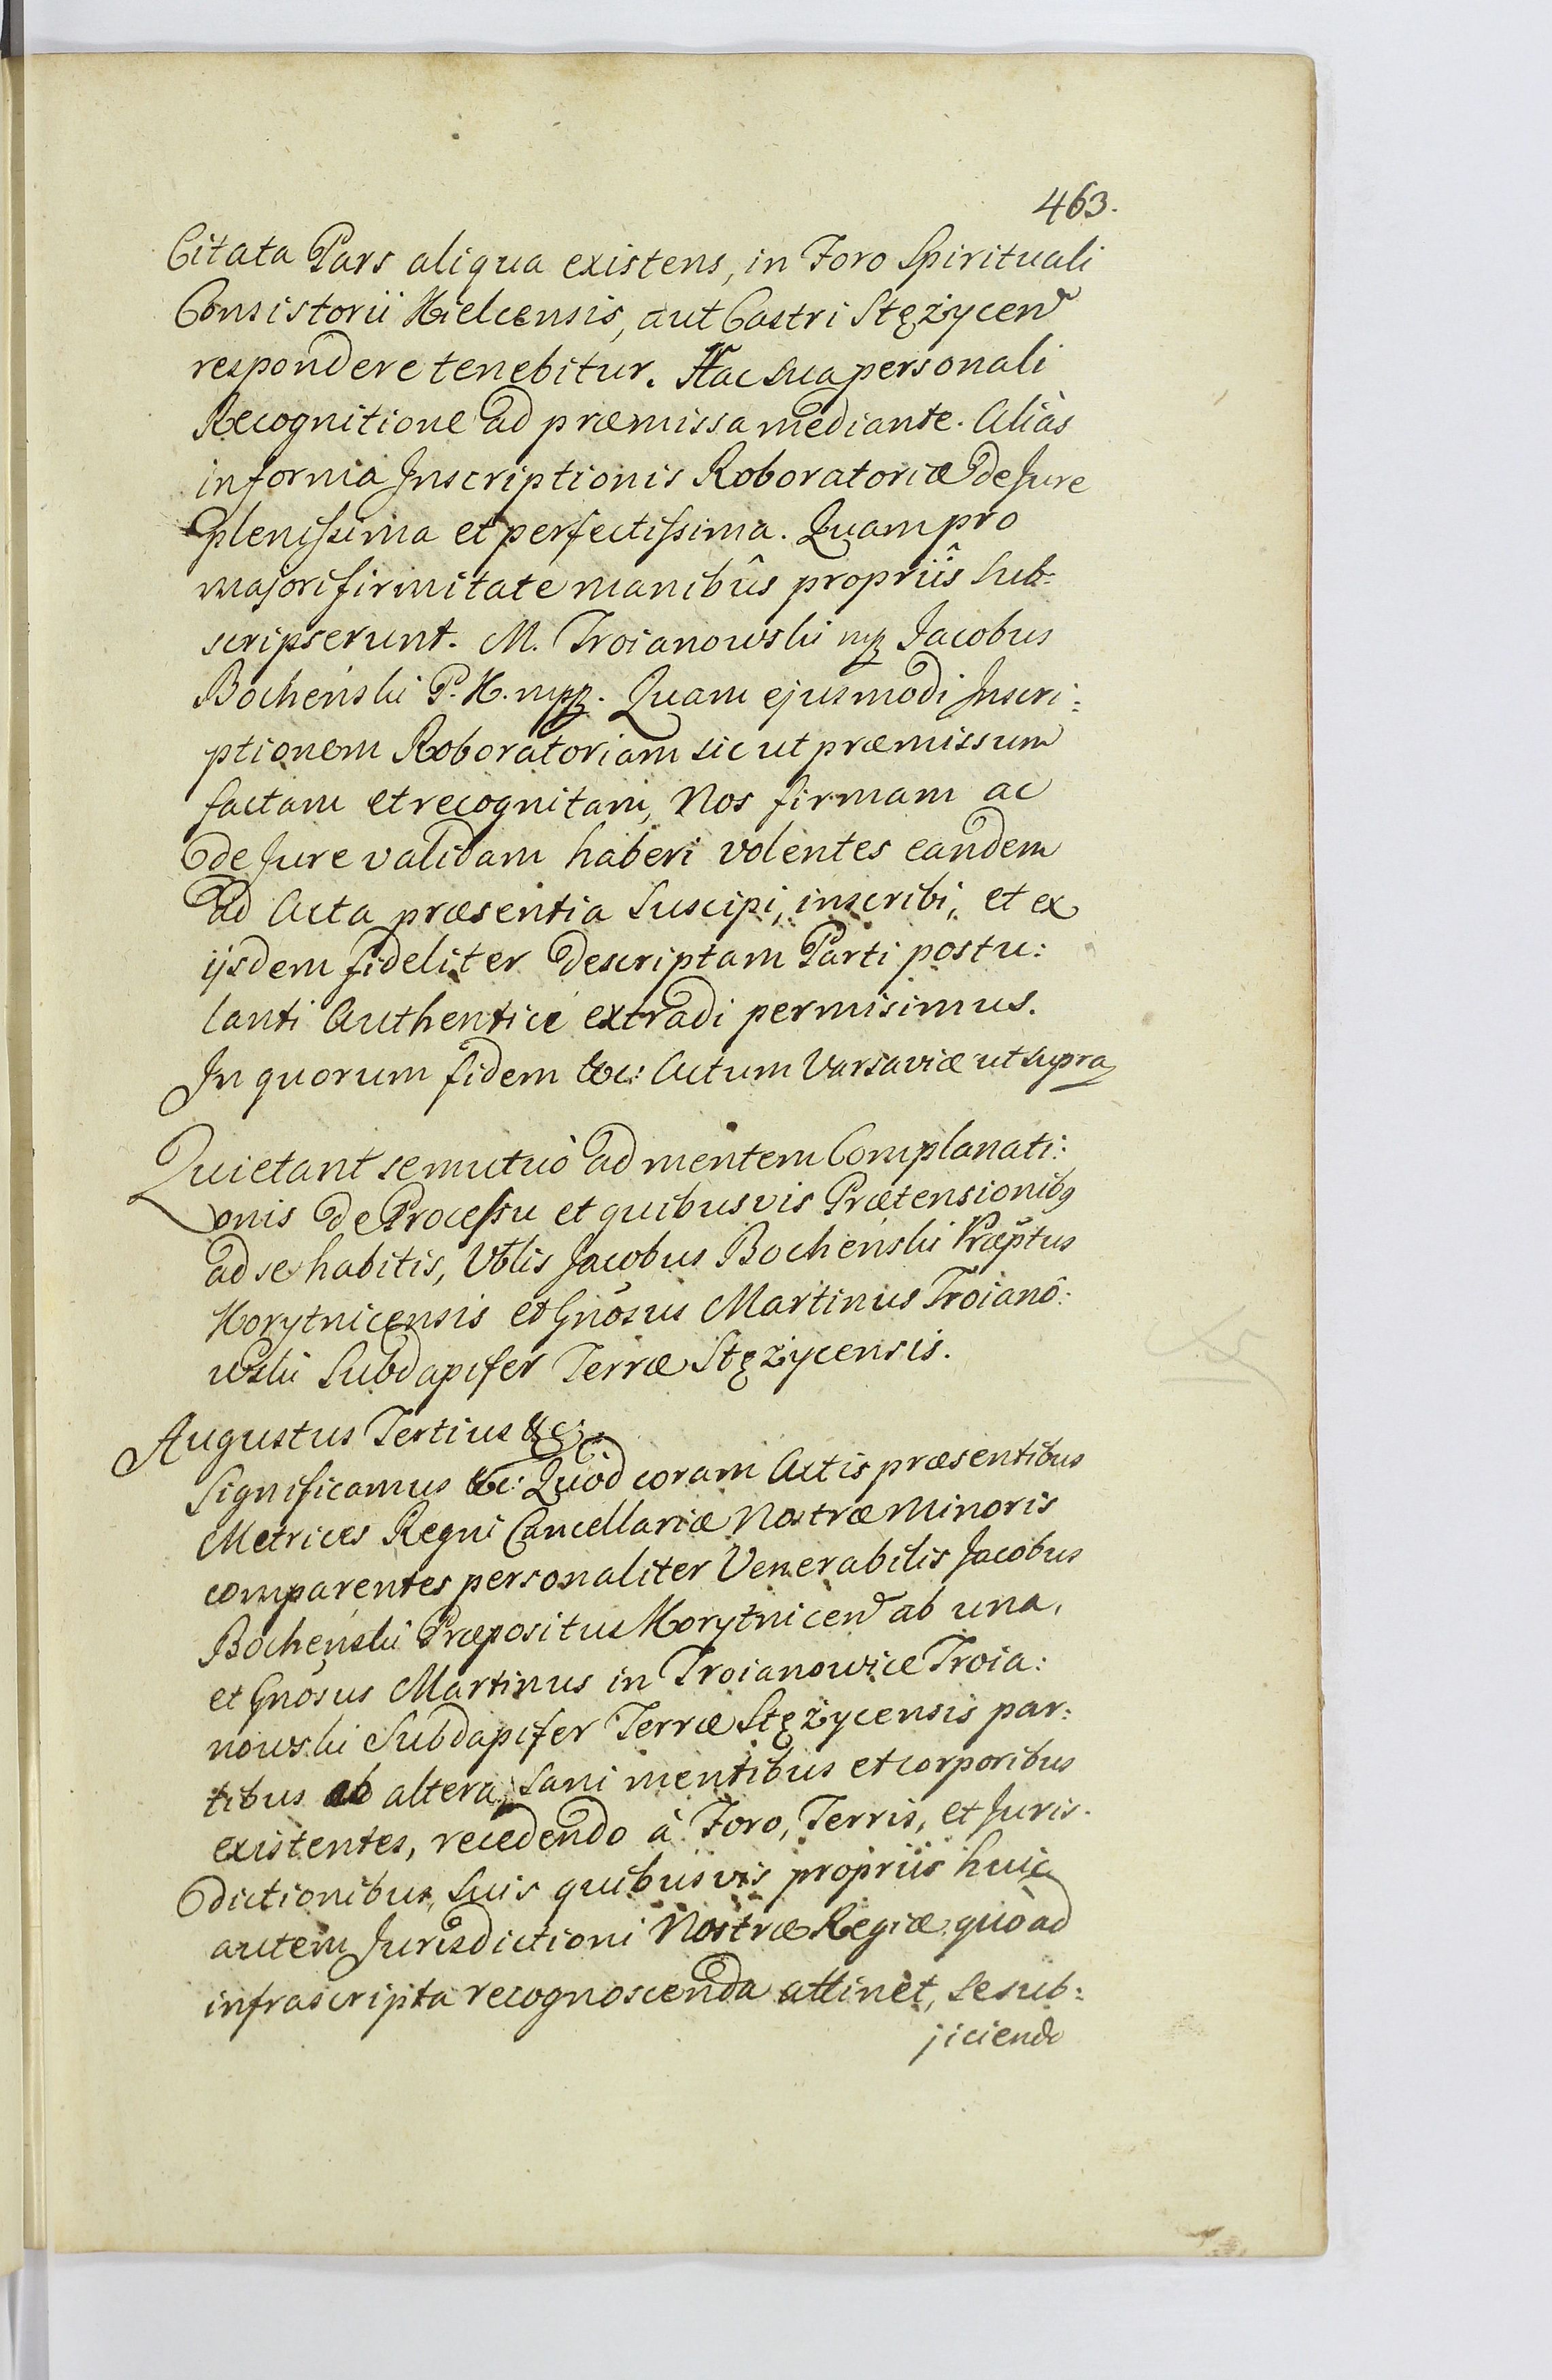 463.
Citata Pars aliqua existens, in Foro Spirituali
Consistorii Kielcensis, aut Castri Stężycen̄
respondere tenebitur. Hac sua personali
Recognitione ad præmissa mediante. Aliàs
in forma Inscriptionis Roboratoriæ de Jure
plenissima et perfectissima. Quam pro
majori firmitate manibûs propriîs sub-
scripserunt. M. Troianowski mp Jacobus
Bocheński P. K. mpp. Quam ejusmodi Inscri:
ptionem Roboratoriam sic ut præmissum
factam et recognitam, Nos firmam ac
de Jure validam haberi volentes eandem
ad Acta præsentia suscipi, inscribi, et ex
ijsdem fideliter descriptam Parti postu:
lanti Authenticè extradi permisimus.
In quorum fidem &c: Actum Varsaviæ ut supra
Quietant se mutuò ad mentem Complanati:
onis de Processu et quibusvis Prætensionibq
ad se habitis, Vblis Jacobus Bocheński Præptus
Korytnicensis et Gnōsus Martinus Troiano:
wski Subdapifer Terræ Stężycensis.
Augustus Tertius &c:
Significamus &c: Quòd coram Actis præsentibus
Metrices Regni Cancellariæ Nostræ Minoris
comparentes personaliter Venerabilis Jacobus
Bocheński Præpositus Korytnicen̄ ab una,
et Gnōsus Martinus in Troianowice Troia:
nowski Subdapifer Terræ Stężycensis par:
tibus ab altera, sani mentibus et corporibus
existentes, recedendo à Foro, Terris, et Juris-
dictionibus, suis quibusvis propriis huic
autem Jurisdictioni Nostræ Regiæ quò ad
infrascripta recognoscenda attinet, se sub:
jiciendo